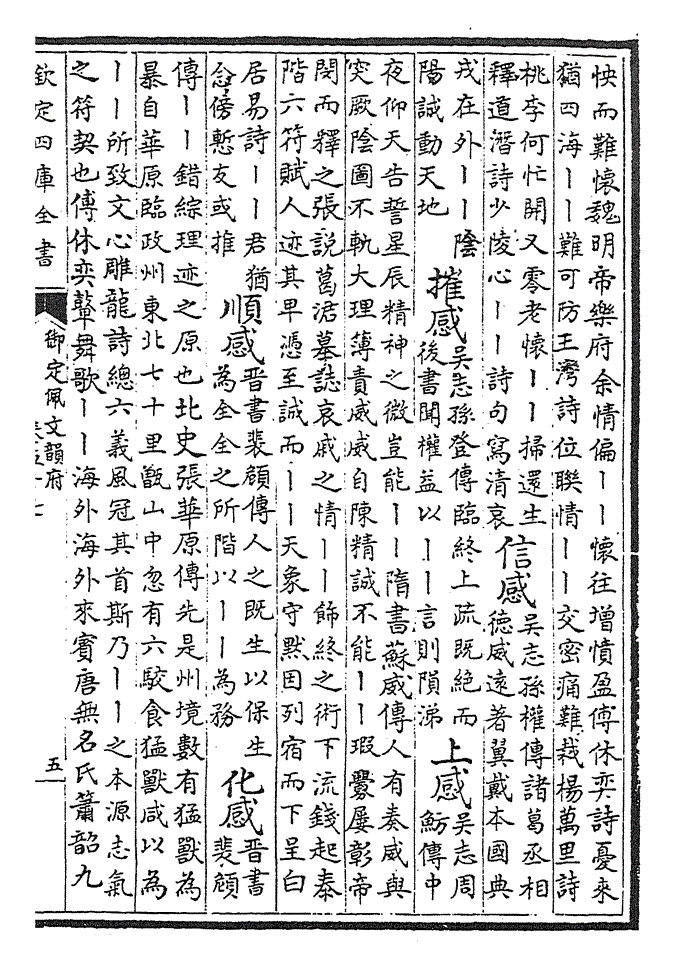 怏而難懷魏明帝樂府余情偏丨丨懷往增憤盈傅休奕詩憂來
猶四海丨丨難可防王灣詩位聯情丨丨交密痛難裁楊萬里詩
桃李何忙開又零老懷丨丨掃還生
釋道潛詩少陵心丨丨詩句寫清哀
信感
吳志孫權傳諸葛丞相
德威遠著翼戴本國典
戎在外丨丨陰
陽誠動天地
摧感
吳志孫登傳臨終上疏既絶而
後書聞權益以丨丨言則隕涕
上感
吳志周
魴傳中
夜仰天告誓星辰精神之微豈能丨丨隋書蘇威傳人有奏威與
突厥陰圖不軌大理簿責威威自陳精誠不能丨丨瑕釁屢彰帝
閔而釋之張說葛涒墓誌哀戚之情丨丨飾終之術下流錢起泰
階六符賦人迹其卑憑至誠而丨丨天象守默因列宿而下呈白
居易詩丨丨君猶
念傍慙友或推
順感
晉書裴頠傳人之既生以保生
為全全之所階以丨丨為務
化感
晉書
裴頠
傳丨丨錯綜理迹之原也北史張華原傳先是州境數有猛獸為
暴自華原臨政州東北七十里甑山中忽有六駮食猛獸咸以為
丨丨所致文心雕龍詩總六義風冠其首斯乃丨丨之本源志氣
之符契也傅休奕鼙舞歌丨丨海外海外來賓唐無名氏簫韶九
欽定四庫全書
御定佩文韻府
五